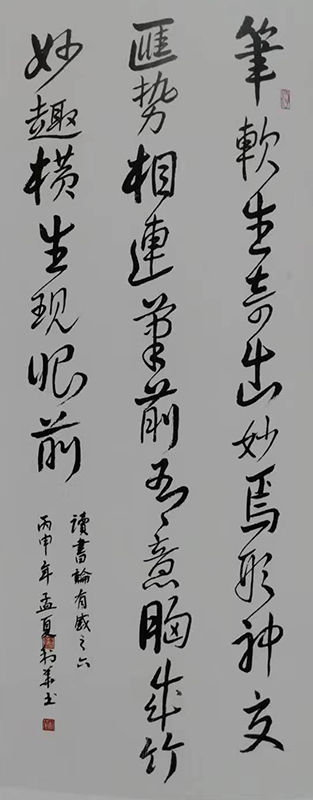 筆軟生奇出妙焉形神交
匯勢相連筆前有意胸成竹
妙趣橫生現眼前
讀書論有感之六
丙申年孟夏利華书